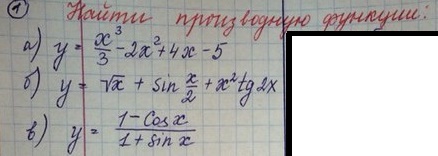 ① Найти производную функции:
а) y = x³/3 - 2x² + 4x - 5
б) y = √x + sin x/2 + x² tg 2x
в) y = (1 - Cos x)/(1 + sin x)